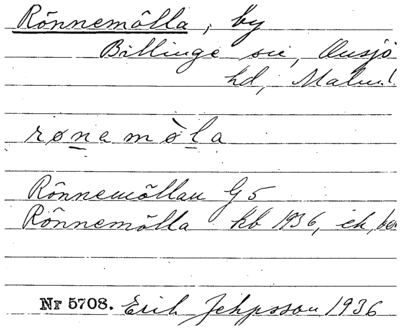 Rönnemölla, by
Billinge sn, Onsjö
hd, Malm.
rønemøla
Rönnemöllan G 5
Rönnemölla kb 1936, ek, ber
Nr 5708. Erik Jeppsson 1936